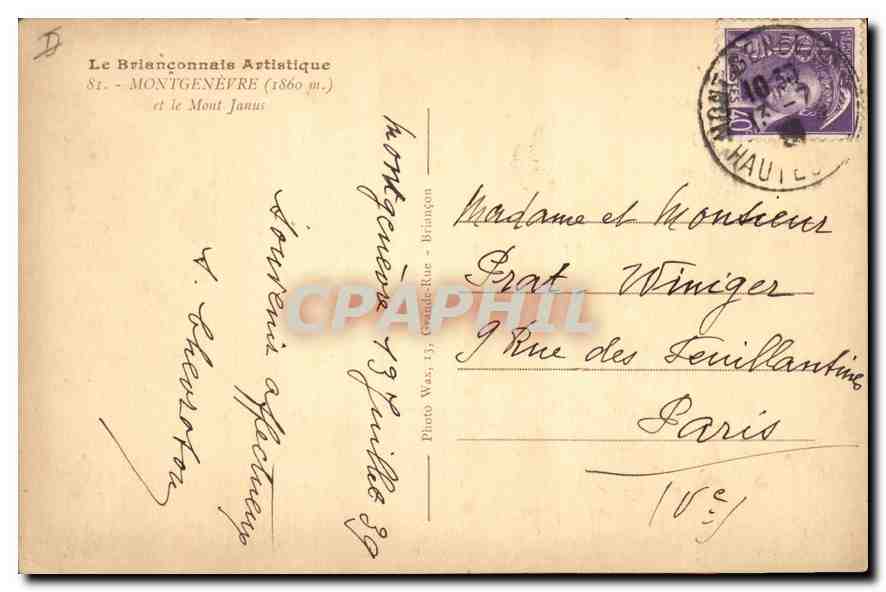 Le Briançonnais Artistique
81. - MONTGENÈVRE (1860 m.)
et le Mont Janus
Montgenèvre 13 Juillet 39
Souvenir affectueux
Photo Wax, 13, Grande-Rue - Briançon
CPAPHIL
10 30
HAUTES
40
Madame et Monsieur
Prat-Winiger
9 Rue des Feuillantines
Paris
(Ve)